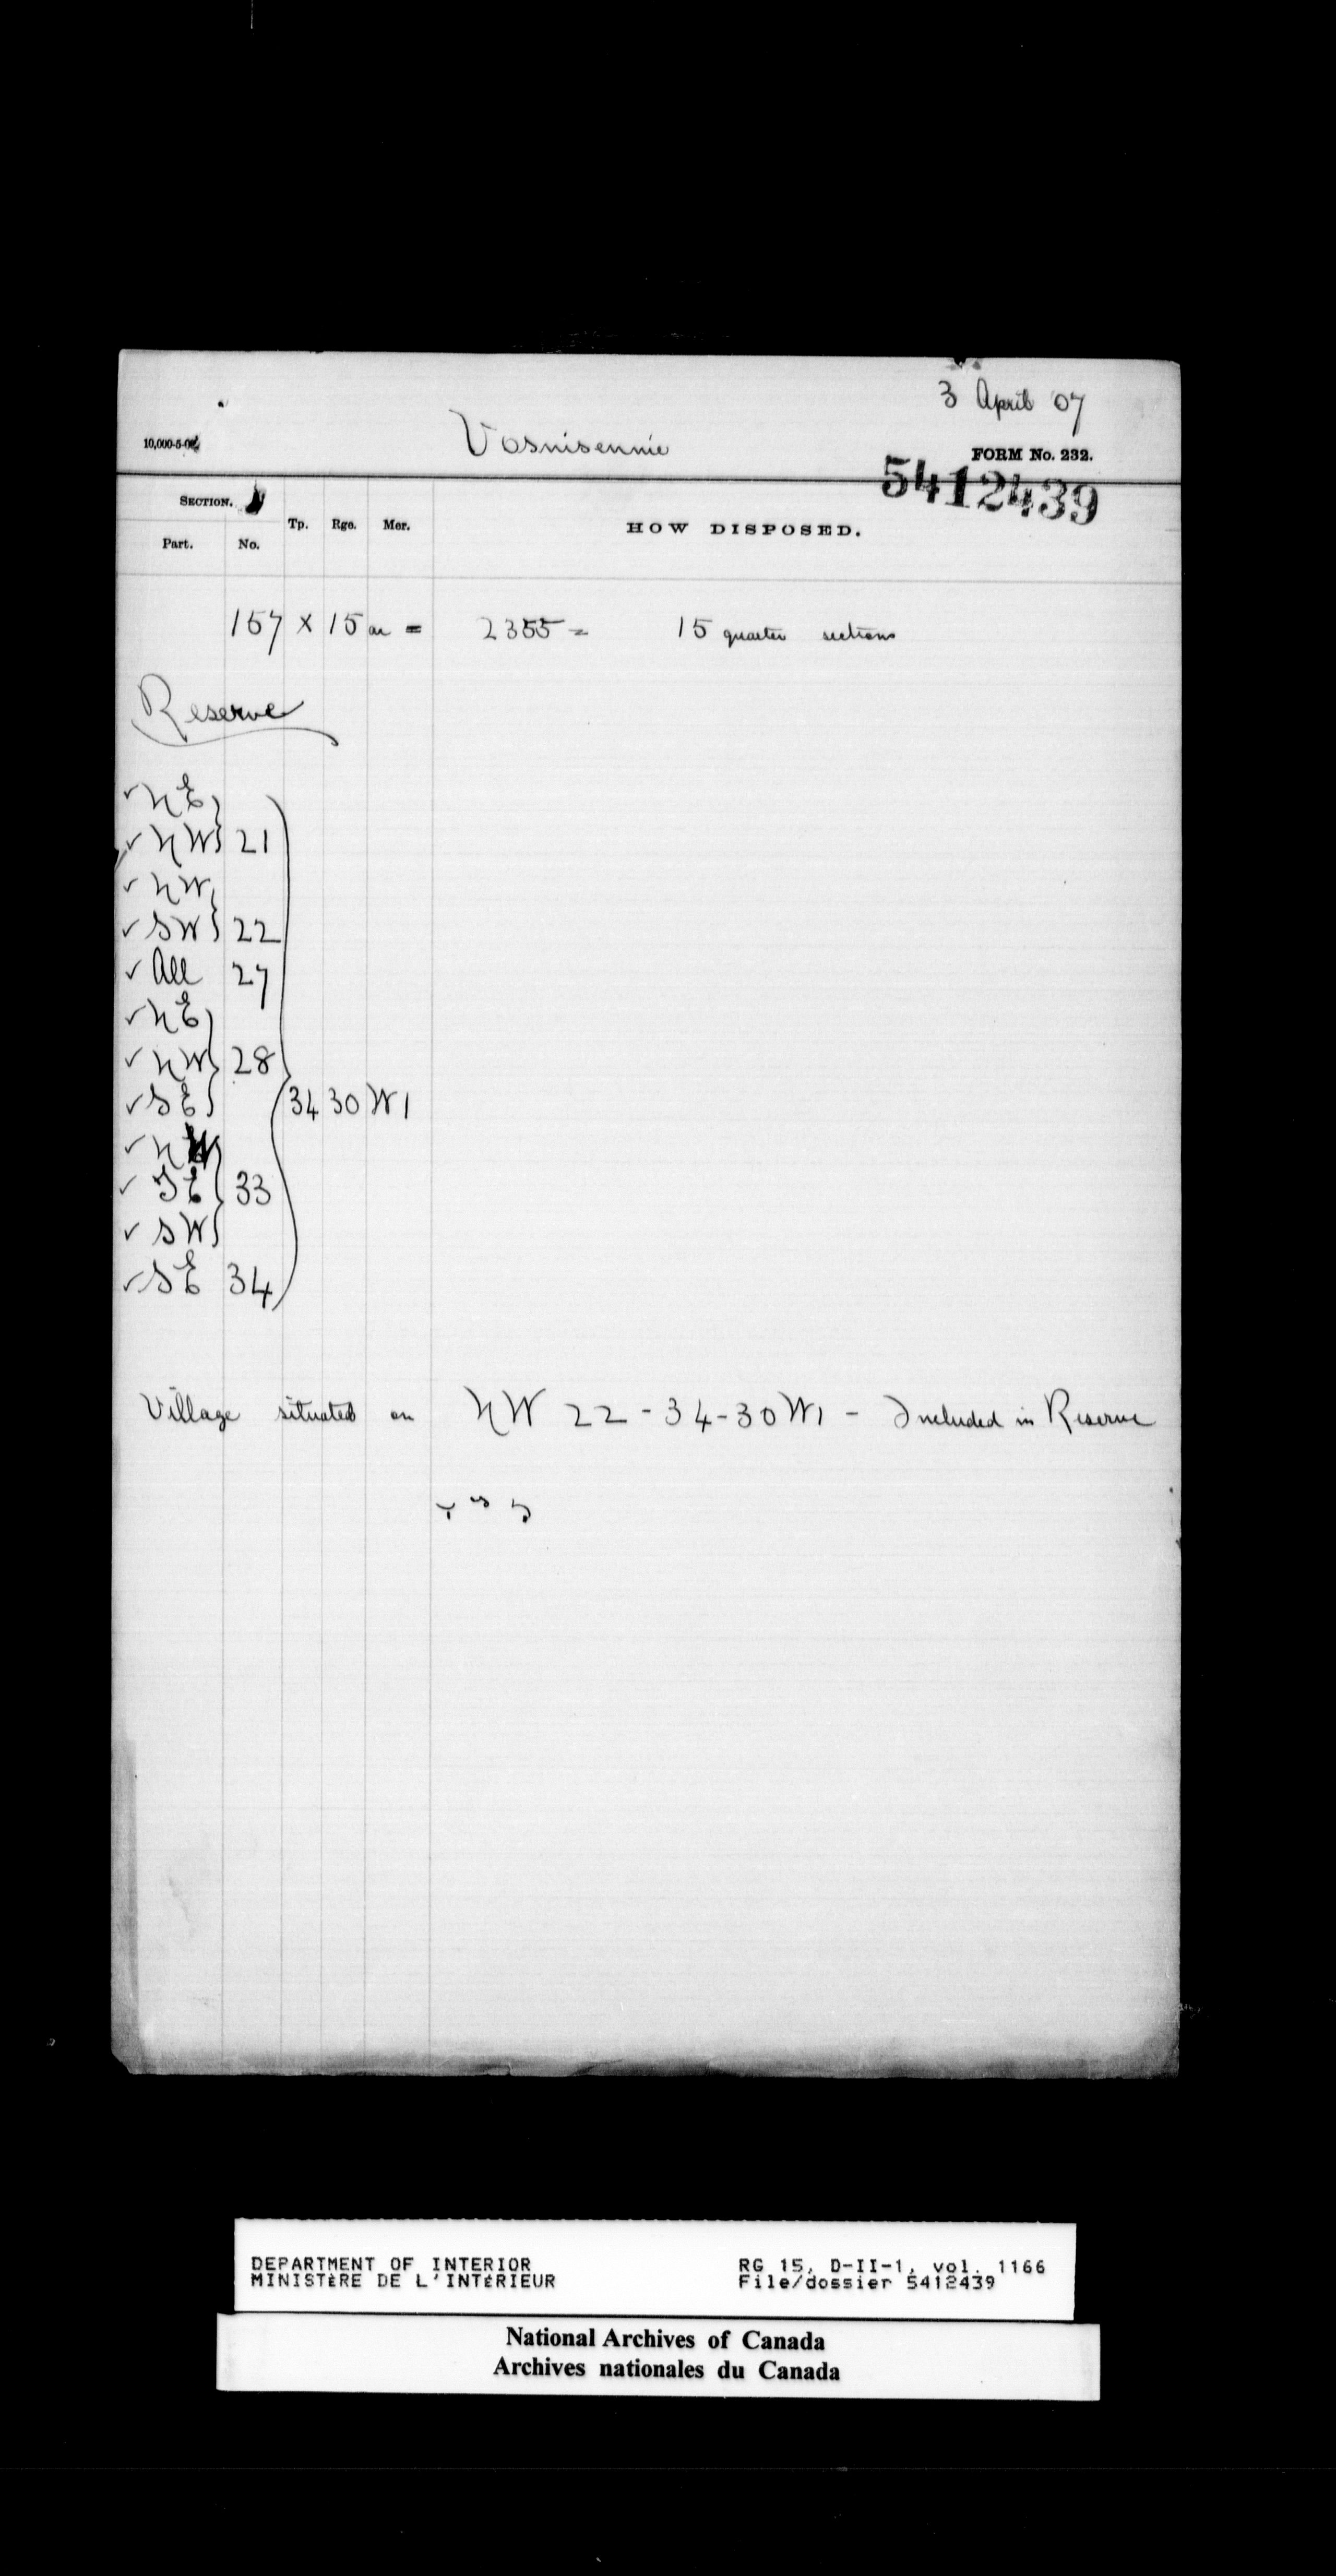 3 April 07
10,000-5-02
Vosnisennie
FORM No. 232.
5412439
SECTION.
Part. No. Tp. Rge. Mer. HOW DISPOSED.
157 x 15 ac = 2355 = 15 quarter sections
Reserve
✓ NE
✓ NW } 21
✓ NW
✓ SW } 22
✓ All 27
✓ NE
✓ NW } 28
✓ SE } 34 30 W1
✓ NW
✓ SE } 33
✓ SW
✓ SE 34
Village situated on NW 22-34-30 W1 - Included in Reserve
DEPARTMENT OF INTERIOR
MINISTÈRE DE L'INTÉRIEUR
RG 15, D-II-1, vol. 1166
File/dossier 5412439
National Archives of Canada
Archives nationales du Canada